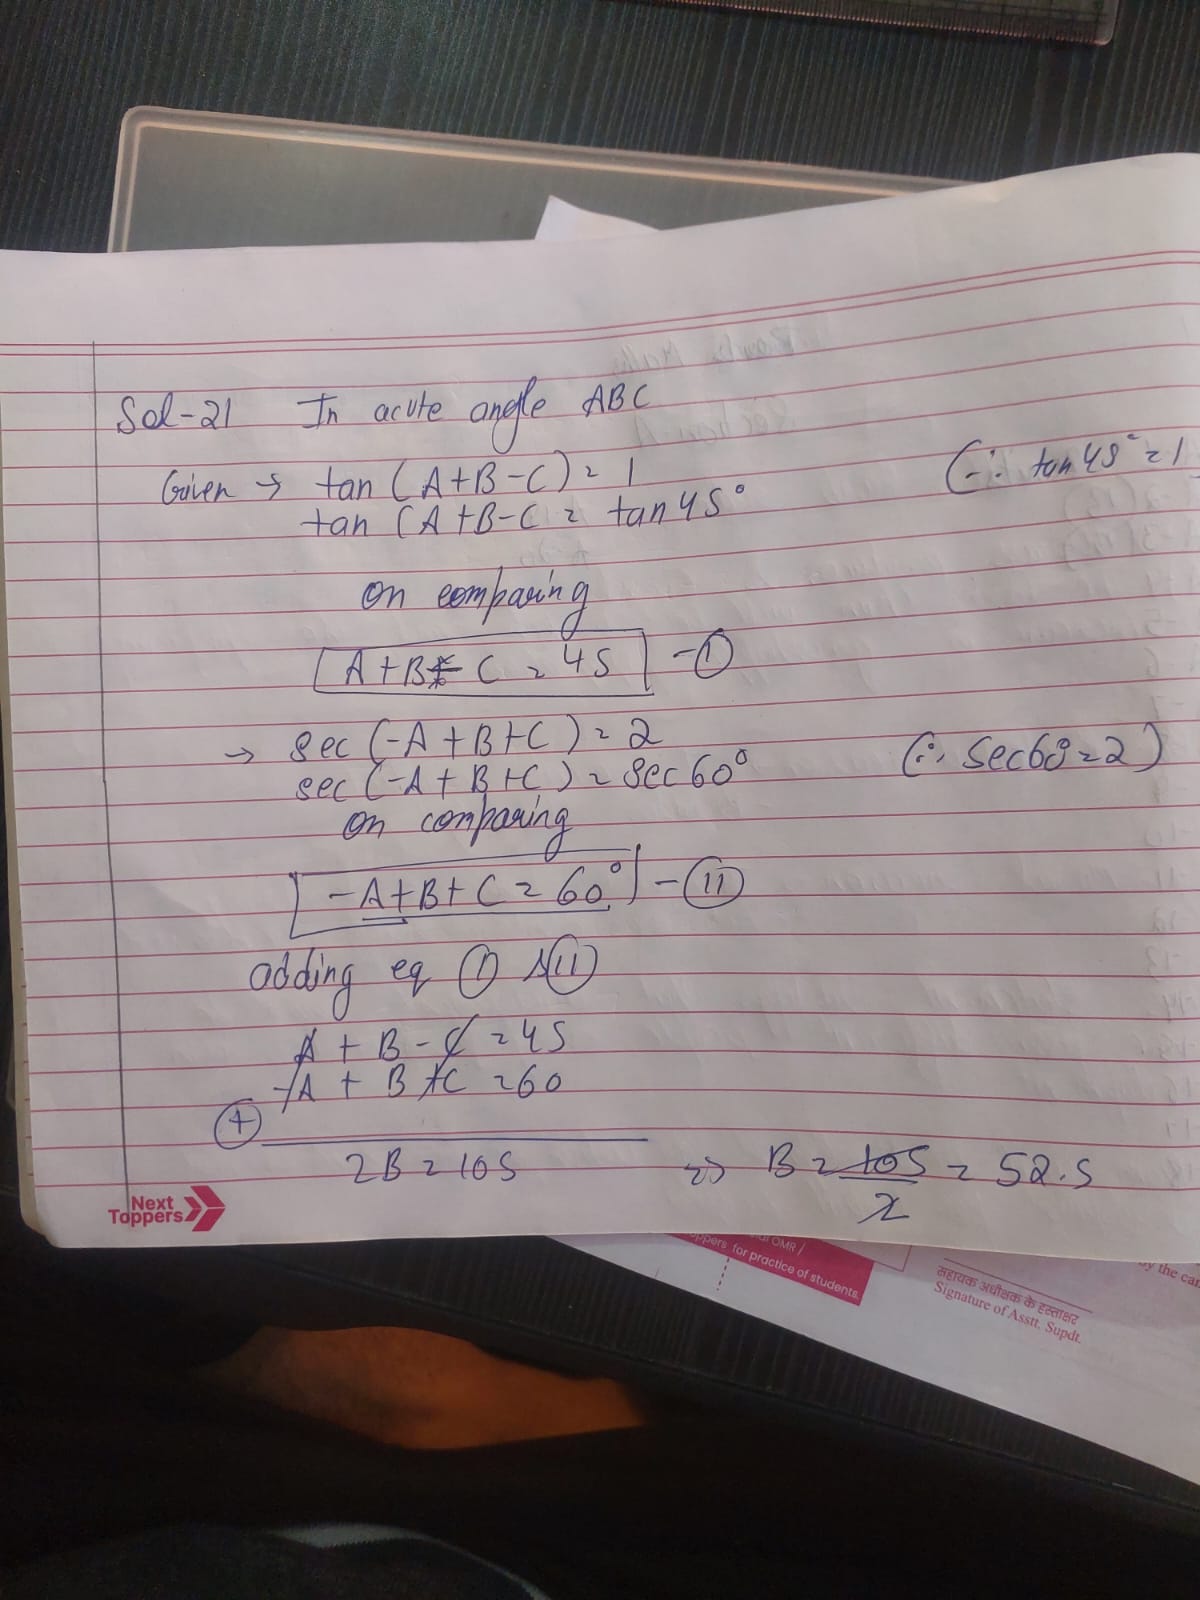 Sol-21 In acute angle ABC
Given → tan (A+B-C) = 1 (∵ tan 45° = 1
tan (A+B-C = tan 45°
on comparing
A+B-C = 45 - (I)
→ sec (-A+B+C) = 2 (∵ sec60°=2)
sec (-A+B+C) = sec 60°
on comparing
-A+B+C = 60° - (II)
adding eq (I) & (II)
A + B - C = 45
-A + B + C = 60
(+)
2B = 105 => B = 105/2 = 52.5
Next
Toppers
OMR /
oppers for practice of students.
by the can
सहायक अधीक्षक के हस्ताक्षर
Signature of Asstt. Supdt.